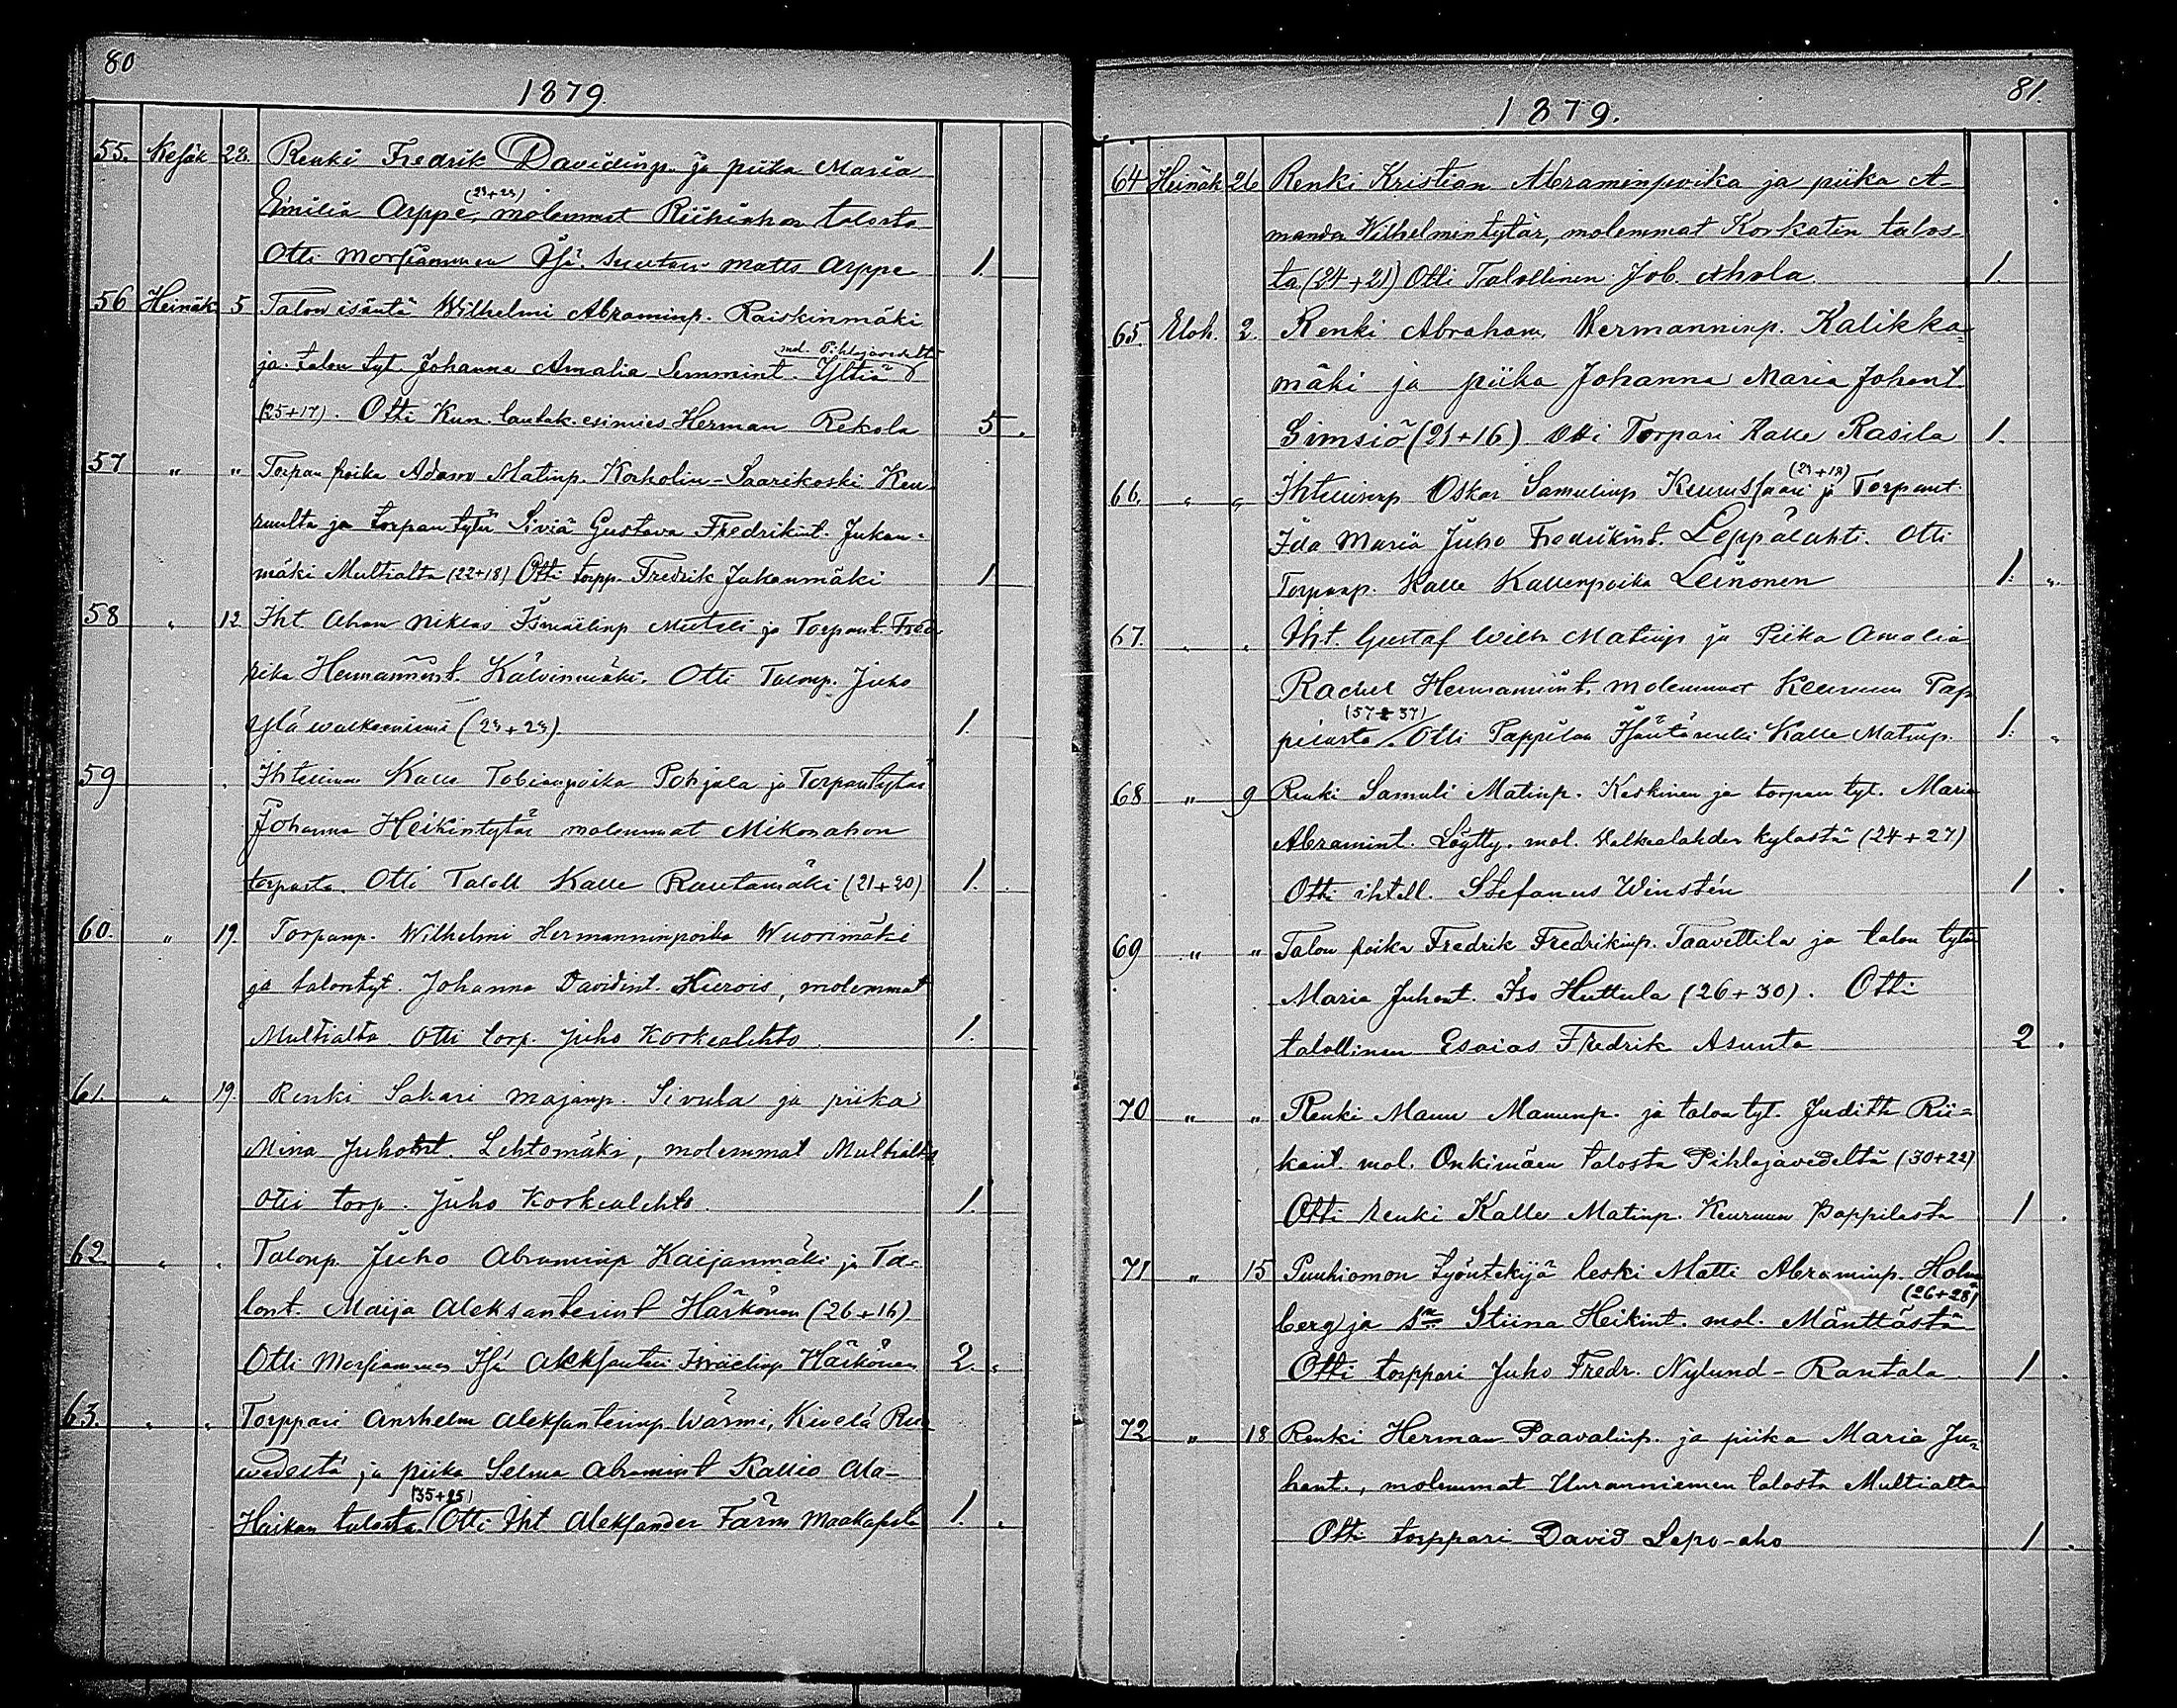 80
1879.
55. Kesäk 28. Renki Fredrik Davidinp. ja piika Maria
(23+23)
Emilia Arppe, molemmat Riihiahon talosta
Otti Morsiammen Isä Matts Arppe 1.
56 Heinäk 5 Talon isäntä Wilhelmi Abraminp. Raiskinmäki
mol. Pihlajavedeltä
ja talon tyt. Johanna Amalia Semmint. Yltiä
(25+17). Otti Kun. lautak. esimies Herman Rekola 5.
57 " " Torpan poika Adam Matinp. Korholin-Saarikoski Keu-
ruulta ja torpan tytär Siviä Gustava Fredrikint. Jukon-
mäki Multialta (22+18) Otti torpp. Fredrik Jukonmäki 1
58 " 12 Iht. Niklas Ismaelinp ja Torpant. Fred-
rika Hermannint. Kälvinmäki. Otti Talonp. Juho
(23+23). 1.
59 " Ihtelinen Kalle Tobiaanpoika Pohjala ja Torpantytär
Johanna Heikintytär molemmat Mikonahon
torpasta. Otti Taloll Kalle Rautamäki (21+20) 1.
60. " 19. Torpanp. Wilhelmi Hermanninpoika Wuorimäki
ja talontyt. Johanna Davidint. Hierois, molemmat
Multialta. Otti torp. Juho Korkealehto. 1.
61. " 19 Renki Sakari Majanp. Sivula ja piika
Mina Juhont. Lehtomäki, molemmat Multialta
Otti torp. Juho Korkealehto. 1.
62. " " Talonp. Juho Abraminp Kaijanmäki ja Ta-
lont. Maija Aleksanterint Härkönen (26+16)
Otti Morsiammen Isä Aleksanteri Israelinp Härkönen 2. "
63. " " Torppari Anshelm Aleksanterinp. Wärmi, Kivelä
ja piika Selma Abramint Kallio Ala-
(35+25)
Haikan talosta Otti Iht Aleksander Färm 1. "
81.
1879.
64 Heinäk 26 Renki Kristian Abraminpoika ja piika A-
manda Wilhelmintytär, molemmat Korkatin talos-
ta (24+21) Otti Talollinen Job. Ahola. 1.
65. Eloh. 2. Renki Abraham Hermanninp. Kalikka-
mäki ja piika Johanna Maria Johant
Simsiö (21+16) Otti Torpari Kalle Rasila 1.
(23+18)
66. " " Ihtelinenp Oskar Samulinp Keurusfaari ja Torpant.
Ida Maria Juho Fredrikint. Leppälahti. Otti
Torpanp. Kalle Kallenpoika Leinonen 1. "
67. " " Iht. Gustaf Wilh. Matinp ja Piika Amalia
Rachel Hermannint. molemmat Keuruun Pap-
(57+37)
pilasta. Otti Pappilan Isäntärenki Kalle Matinp. 1. "
68 " 9 Renki Samuli Matinp. Keskinen ja torpan tyt. Maria
Abramint. Löytty. mol. Valkealahden kylästä (24+27)
Otti ihtell. Stefanus Winstén 1.
69 " " Talon poika Fredrik Fredrikinp. Taavettila ja talon tytär
Maria Juhont. Iso Huttula (26+30). Otti
talollinen Esaias Fredrik Asunta 2.
70 " " Renki Manu Manunp. ja talon tyt. Judith Rii-
kant. mol. Onkimäen talosta Pihlajavedeltä (30+22)
Otti renki Kalle Matinp. Keuruun Pappilasta 1.
71 " 15 Puuhiomon työntekijä leski Matti Abraminp. Holm-
(26+28)
berg ja Stiina Heikint. mol. Mänttästä
Otti torppari Juho Fredr. Nylund-Rantala 1.
72 " 18 Renki Herman Paavalinp. ja piika Maria Ju-
hont., molemmat Uuranniemen talosta Multialta
Otti torppari David Lepo-aho 1.